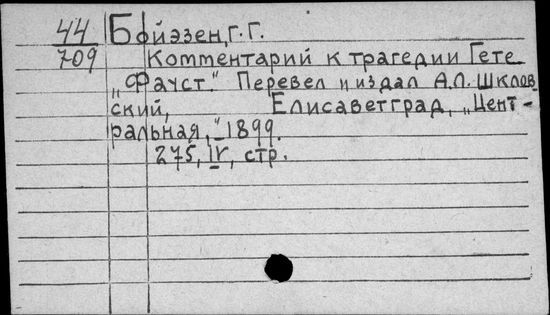 44
709
Бойэзен, Г. Г.
Комментарий к трагедии Гете
„Фауст." Перевел и издал А.Л. Шклов
ский, Елисаветград, „Цент-
ральная," 1899.
275, IV, стр.